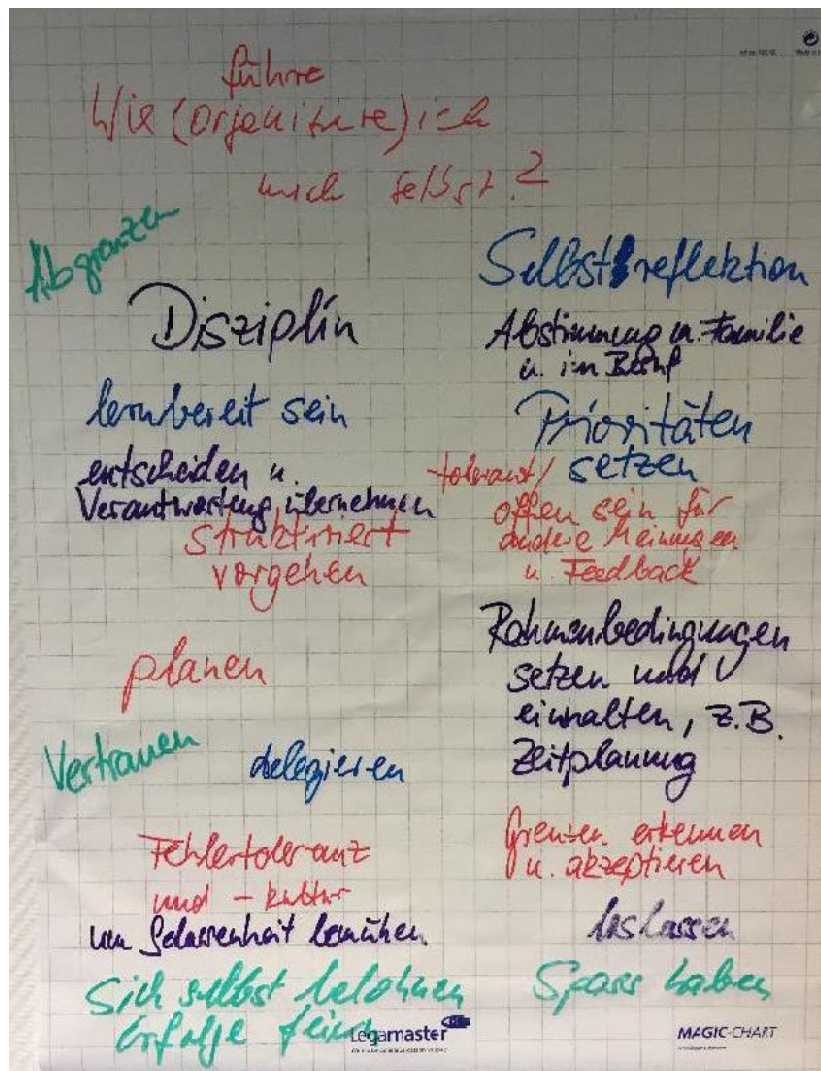 führe
Wie (organisiere) ich
mich selbst?
Abgrenzen
Disziplin
lernbereit sein
entscheiden u.
Verantwortung übernehmen
strukturiert
vorgehen
planen
Vertrauen
delegieren
Fehlertoleranz
und -kultur
um Gelassenheit bemühen
Sich selbst belohnen
Erfolge feiern
Selbstreflektion
Abstimmung m. Familie
u. im Beruf
Prioritäten
setzen
-tolerant/
offen sein für
andere Meinungen
u. Feedback
Rahmenbedingungen
setzen und
einhalten, z.B.
Zeitplanung
Grenzen erkennen
u. akzeptieren
loslassen
Spass haben
Legamaster
MAGIC-CHART